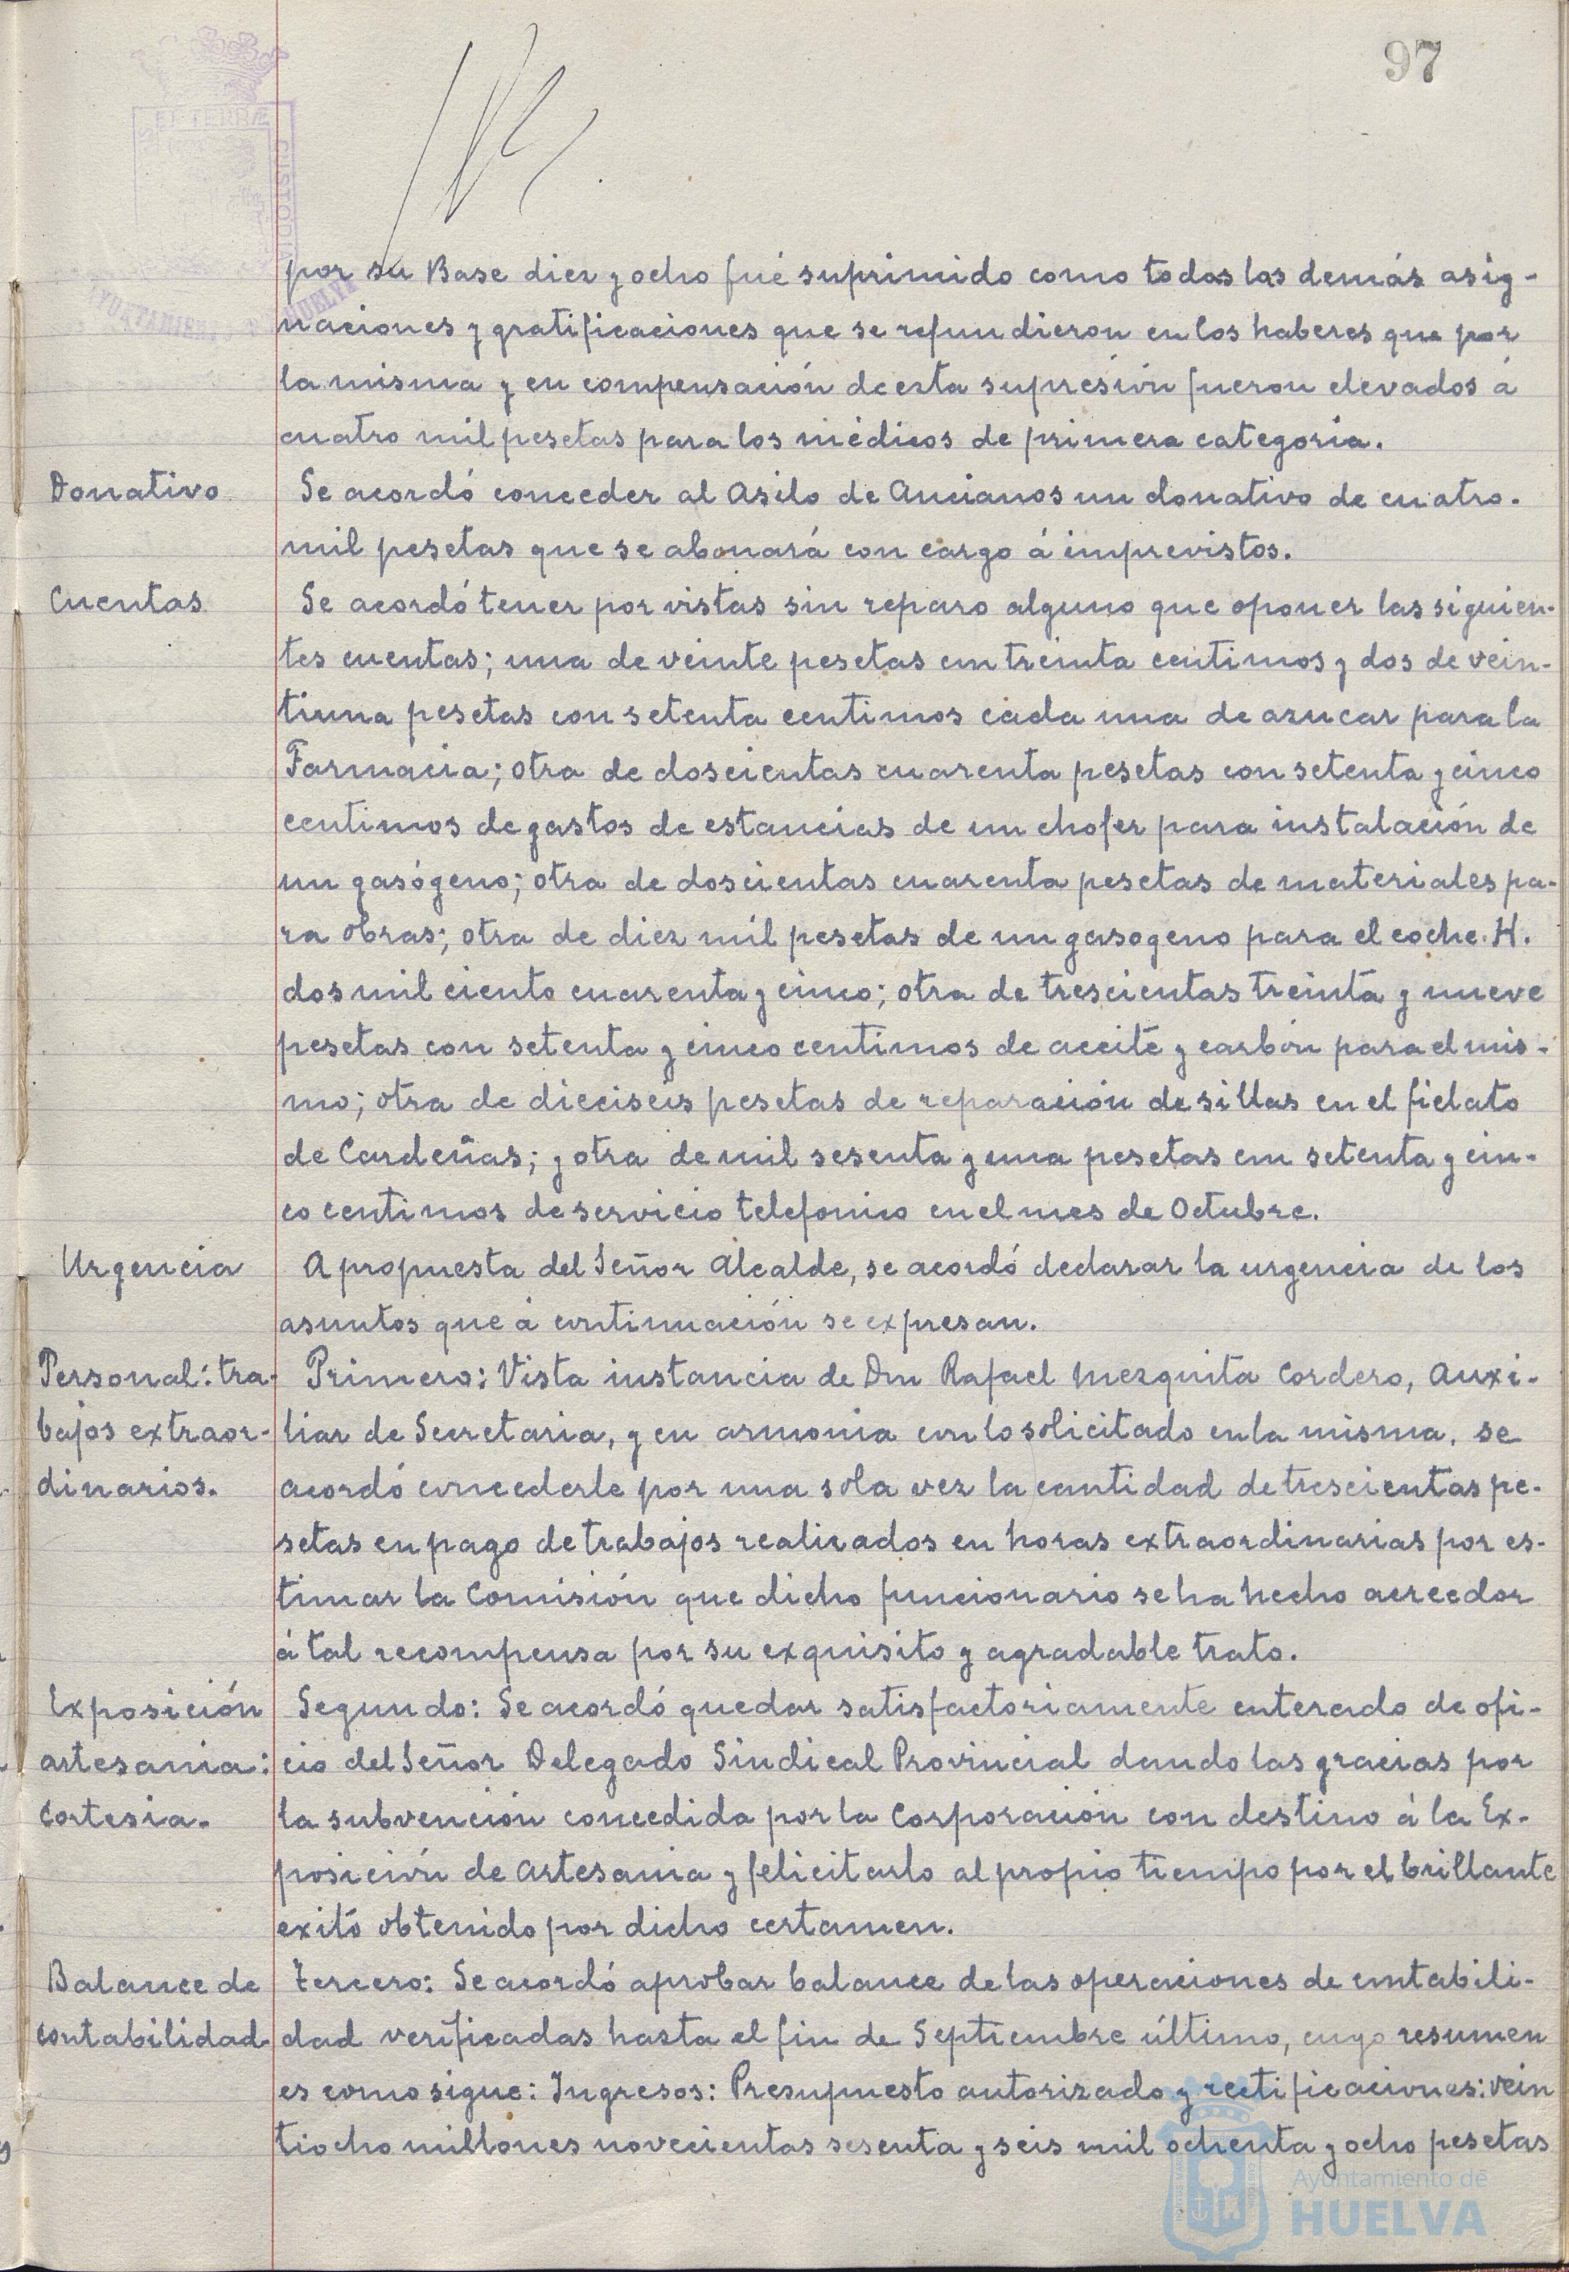 97
ET TERRÆ
CUSTODIA
AYUNTAMIENTO DE HUELVA
por su Base diez y ocho fué suprimido como todas las demás asig-
naciones y gratificaciones que se refundieron en los haberes que por
la misma y en compensación de esta supresión fueron elevados á
cuatro mil pesetas para los médicos de primera categoría.
Donativo Se acordó conceder al Asilo de Ancianos un donativo de cuatro-
mil pesetas que se abonará con cargo á imprevistos.
Cuentas Se acordó tener por vistas sin reparo alguno que oponer las siguien-
tes cuentas; una de veinte pesetas con treinta centimos y dos de vein-
tiuna pesetas con setenta centimos cada una de azucar para la
Farmacia; otra de doscientas cuarenta pesetas con setenta y cinco
centimos de gastos de estancias de un chofer para instalación de
un gasógeno; otra de doscientas cuarenta pesetas de materiales pa-
ra obras; otra de diez mil pesetas de un gasogeno para el coche. H.
dos mil ciento cuarenta y cinco; otra de trescientas treinta y nueve
pesetas con setenta y cinco centimos de aceite y carbón para el mis-
mo; otra de dieciseis pesetas de reparación de sillas en el fielato
de Cardeñas; y otra de mil sesenta y una pesetas con setenta y cin-
co centimos de servicio telefonico en el mes de Octubre.
Urgencia A propuesta del Señor Alcalde, se acordó declarar la urgencia de los
asuntos que á continuación se expresan.
Personal: tra- Primero: Vista instancia de Don Rafael Mezquita Cordero, Auxi-
bajos extraor- liar de Secretaria, y en armonia con lo solicitado en la misma, se
dinarios. acordó concederle por una sola vez la cantidad de trescientas pe-
setas en pago de trabajos realizados en horas extraordinarias por es-
timar la Comisión que dicho funcionario se ha hecho acreedor
á tal recompensa por su exquisito y agradable trato.
Exposición Segundo: Se acordó quedar satisfactoriamente enterado de ofi-
artesania: cio del Señor Delegado Sindical Provincial dando las gracias por
Cortesia. la subvención concedida por la Corporación con destino á la Ex-
posición de Artesania y felicitarlo al propio tiempo por el brillante
exito obtenido por dicho certamen.
Balance de tercero: Se acordó aprobar balance de las operaciones de contabili-
contabilidad dad verificadas hasta el fin de Septiembre último, cuyo resumen
es como sigue: Ingresos: Presupuesto autorizado y rectificaciones: vein
tiocho millones novecientas sesenta y seis mil ochenta y ocho pesetas
Ayuntamiento de
HUELVA